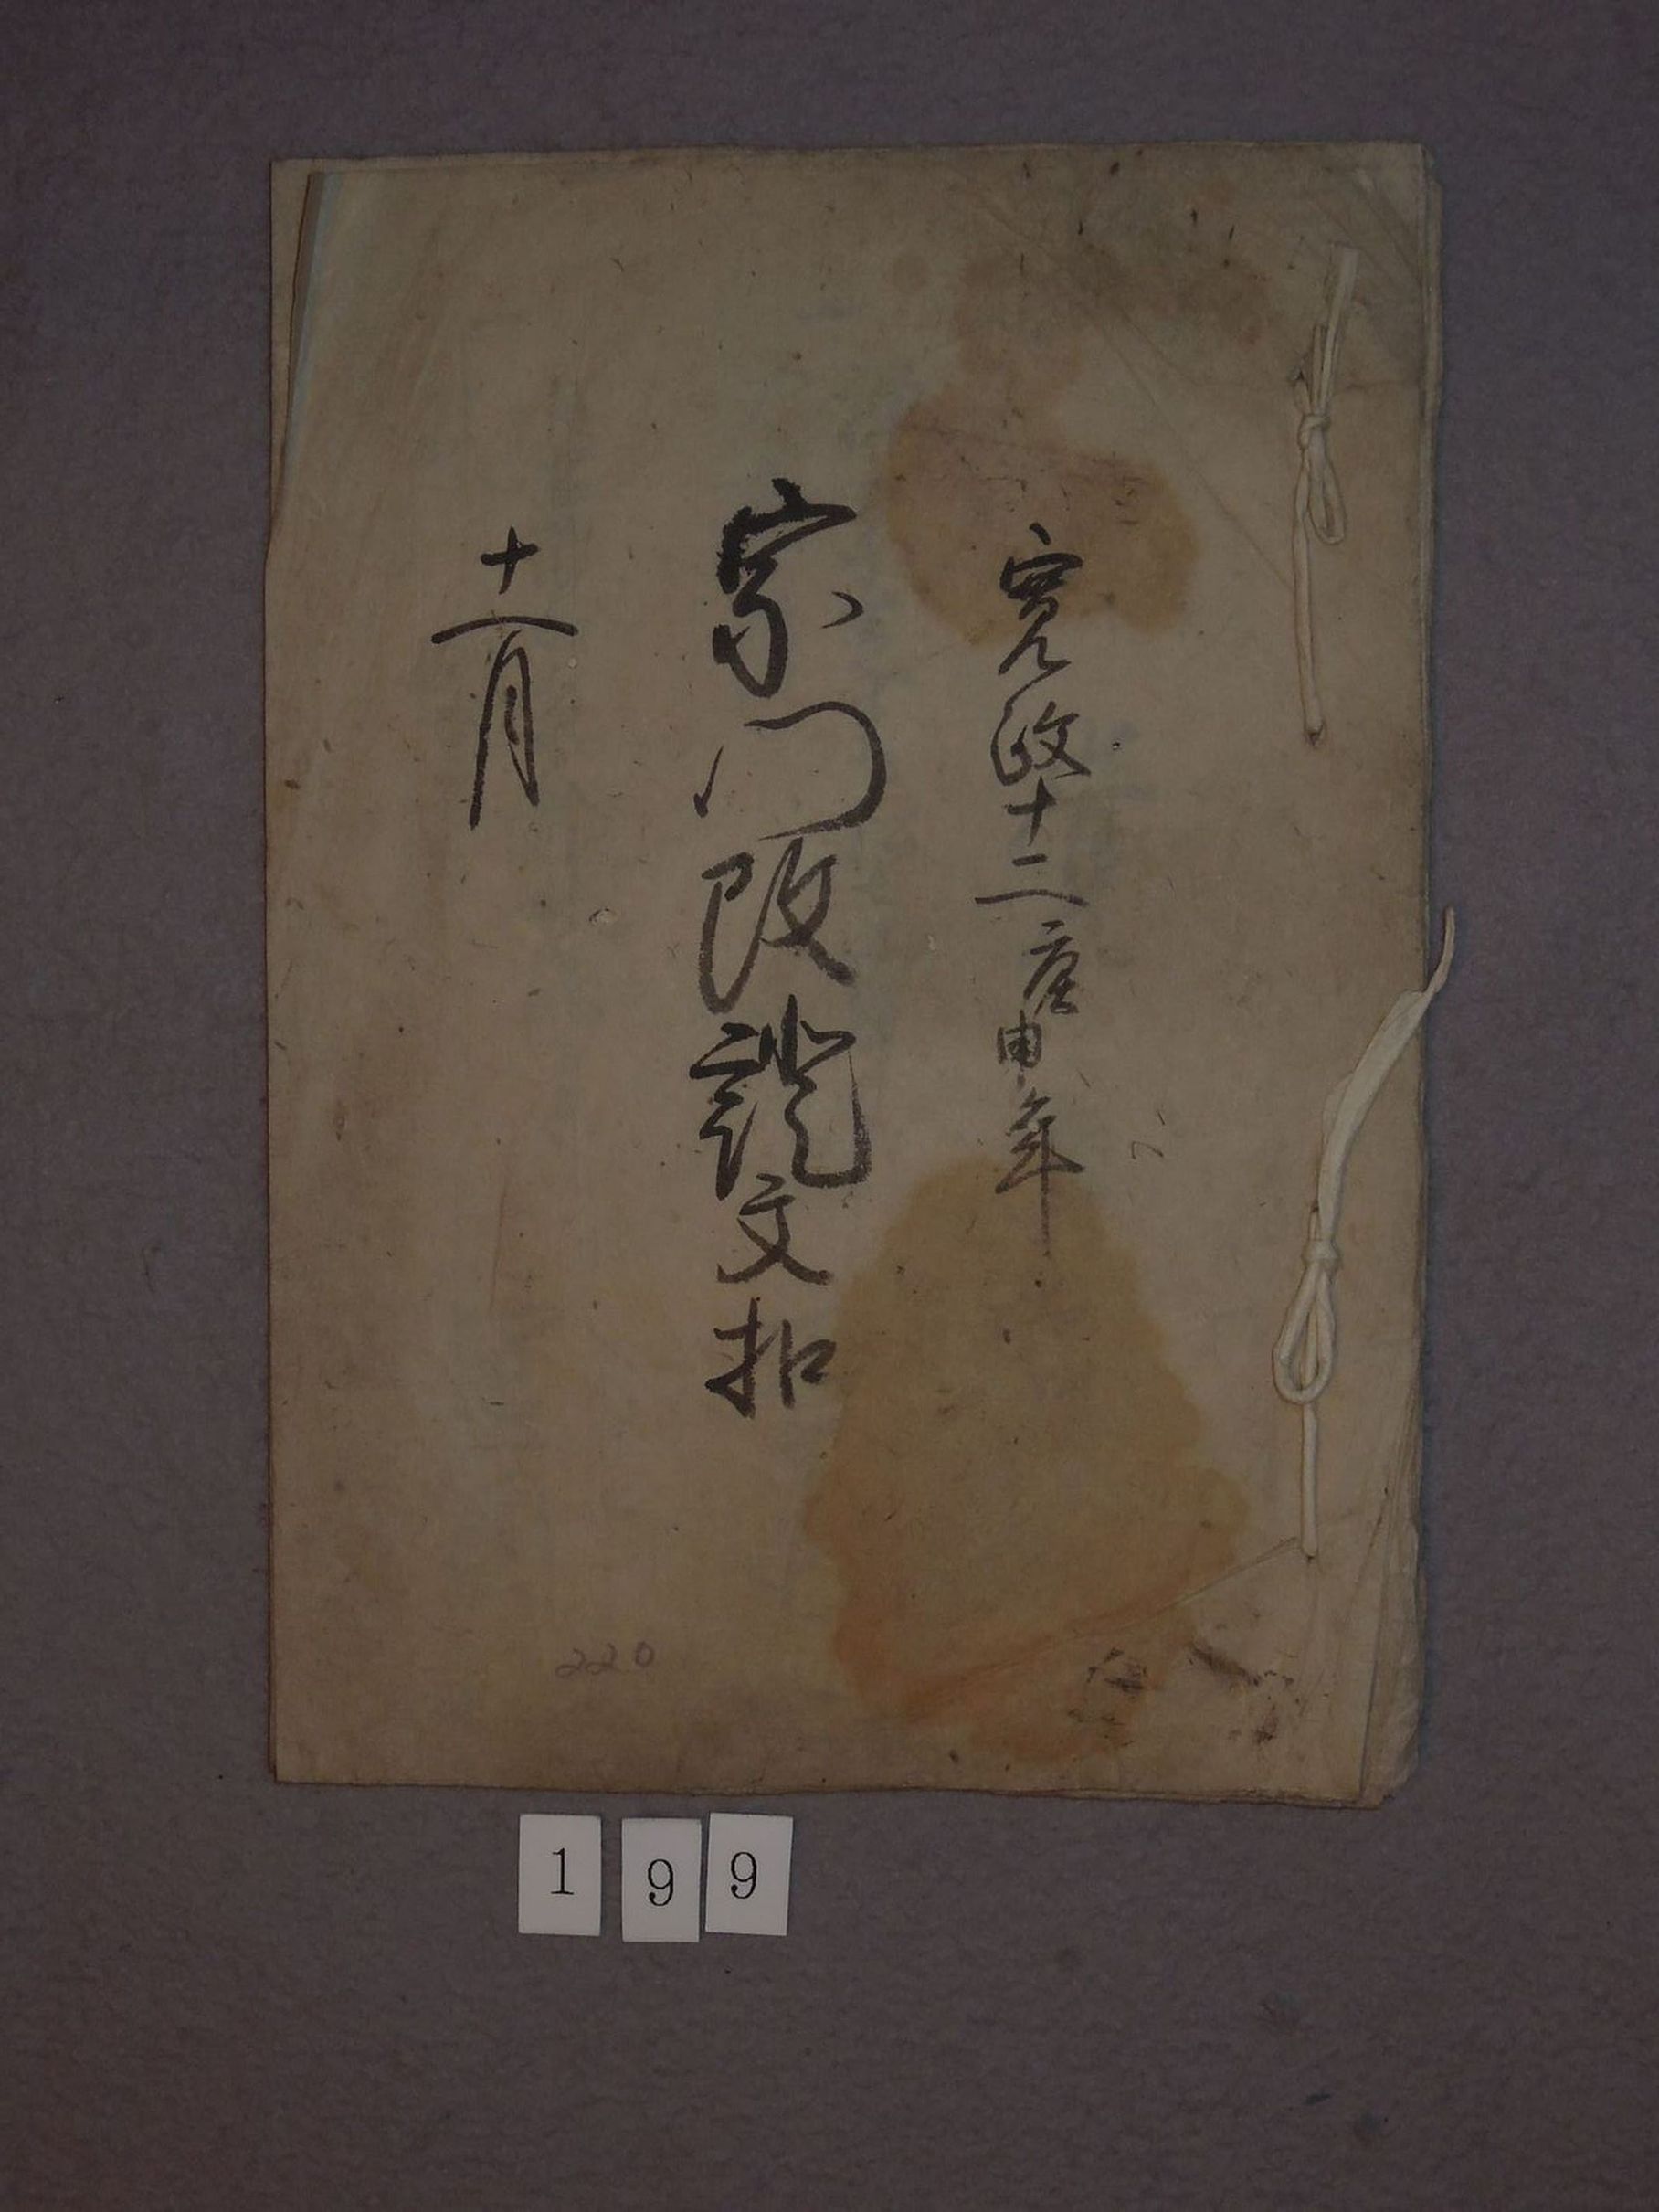 寛政十二庚申年
宗門改證文扣
十一月
220
199